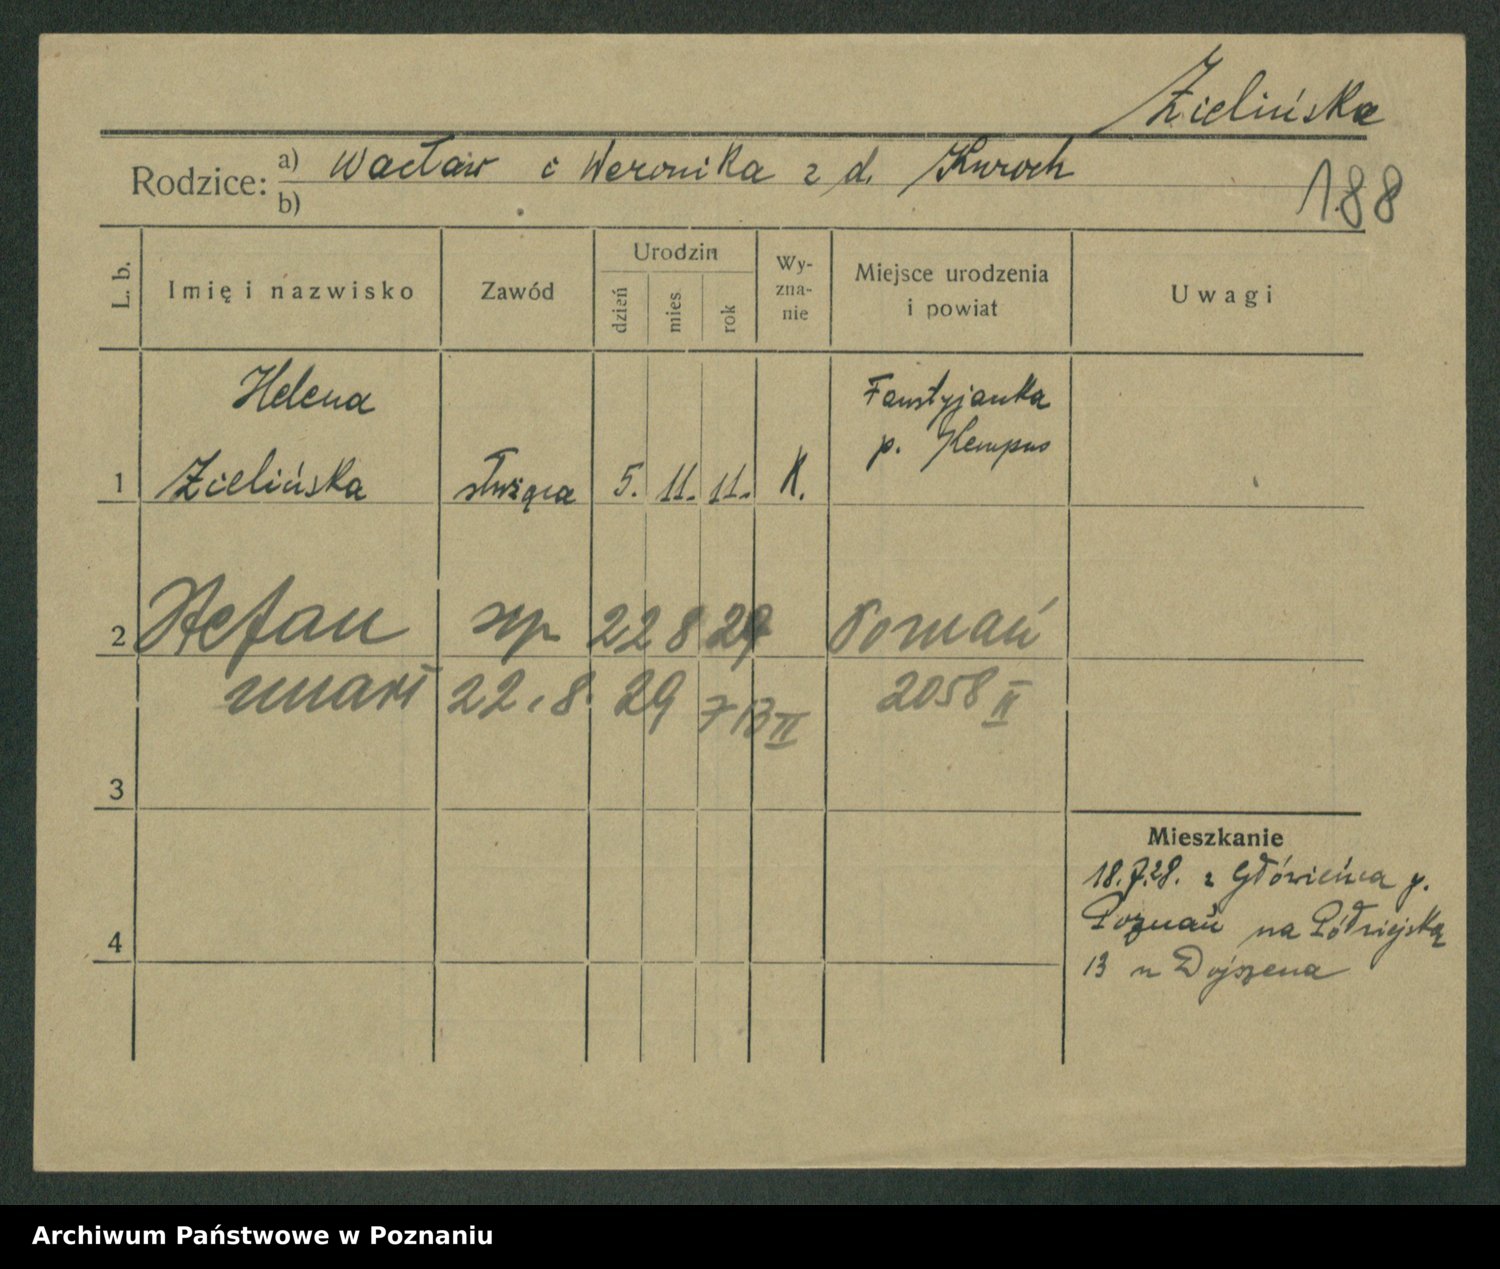 Zielińska
Rodzice: a) Wacław i Weronika z d. Kuroch
b)
188
L. b.
Imię i nazwisko
Zawód
Urodzin
dzień
mies.
rok
Wy-
zna-
nie
Miejsce urodzenia
i powiat
Uwagi
Helena
Faustyjanka
p. Kempno
1 Zielińska służąca 5. 11. 11. K.
2 Stefan syn 22 8 29 Poznań
zmarł 22.8.29 713 II 2058 II
3
Mieszkanie
18.7.28. z Główieńca p.
Poznań na Półwiejską
4
13 u Dojszena
Archiwum Państwowe w Poznaniu